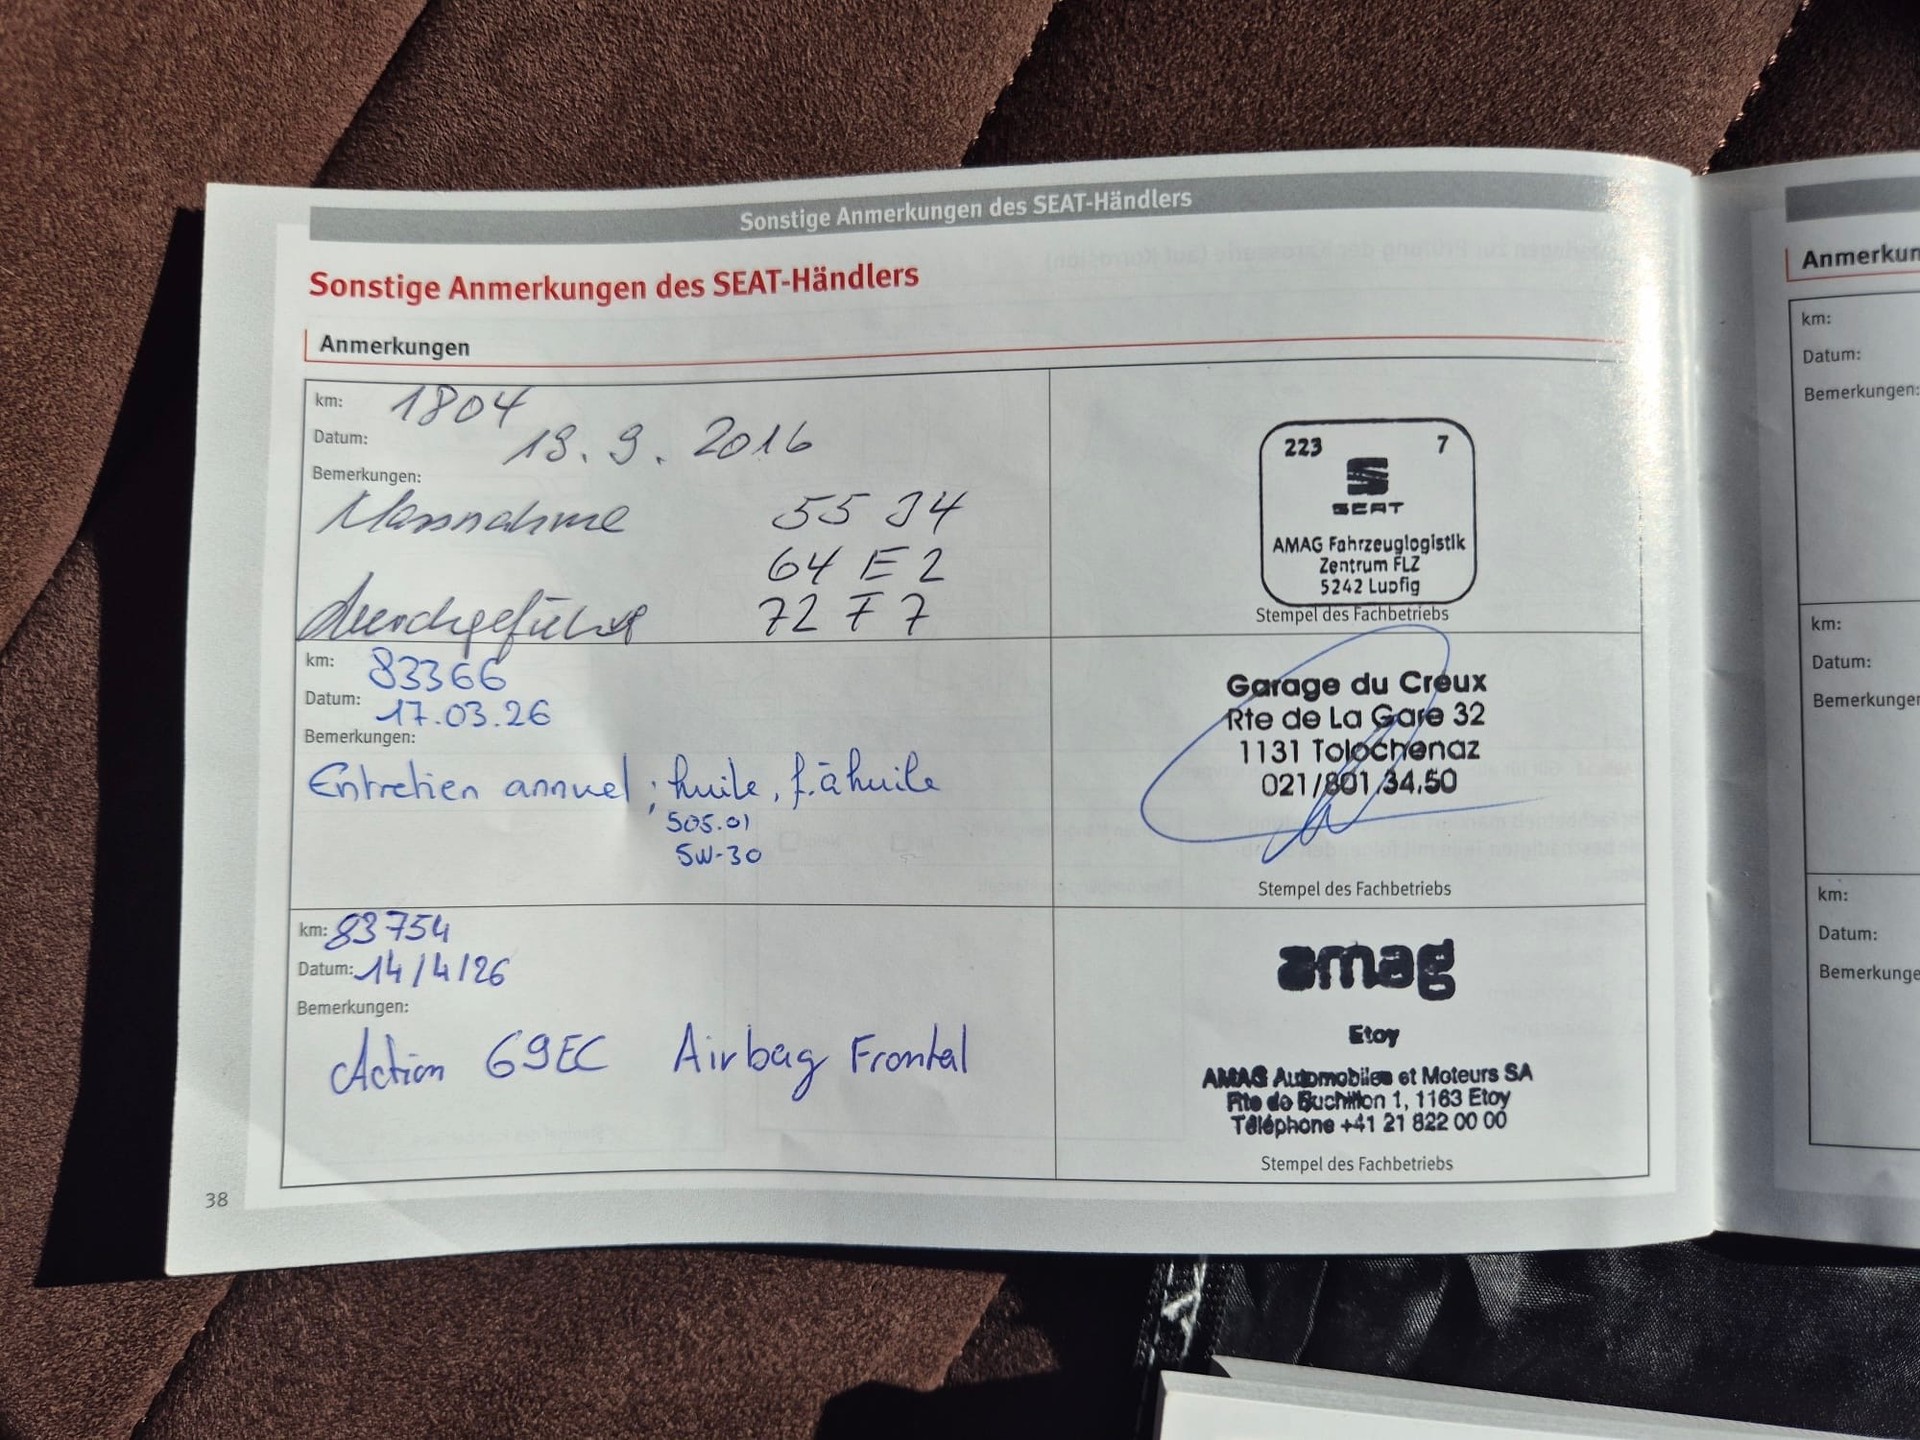 Sonstige Anmerkungen des SEAT-Händlers
Sonstige Anmerkungen des SEAT-Händlers
Anmerkungen
km: 1804
Datum: 19. 9. 2016
Bemerkungen:
Massnahme 55 J4
64 E2
durchgeführt 72 F7
223 7
SEAT
AMAG Fahrzeuglogistik
Zentrum FLZ
5242 Lupfig
Stempel des Fachbetriebs
km: 83366
Datum: 17.03.26
Bemerkungen:
Entretien annuel ; huile, f. à huile
505.01
5W-30
Garage du Creux
Rte de La Gare 32
1131 Tolochenaz
021/801.34.50
Stempel des Fachbetriebs
km: 83754
Datum: 14/4/26
Bemerkungen:
Action 69EC Airbag Frontal
amag
Etoy
AMAG Automobiles et Moteurs SA
Rte de Buchillon 1, 1163 Etoy
Téléphone +41 21 822 00 00
Stempel des Fachbetriebs
38
Anmerkun
km:
Datum:
Bemerkungen:
km:
Datum:
Bemerkungen
km:
Datum:
Bemerkunge